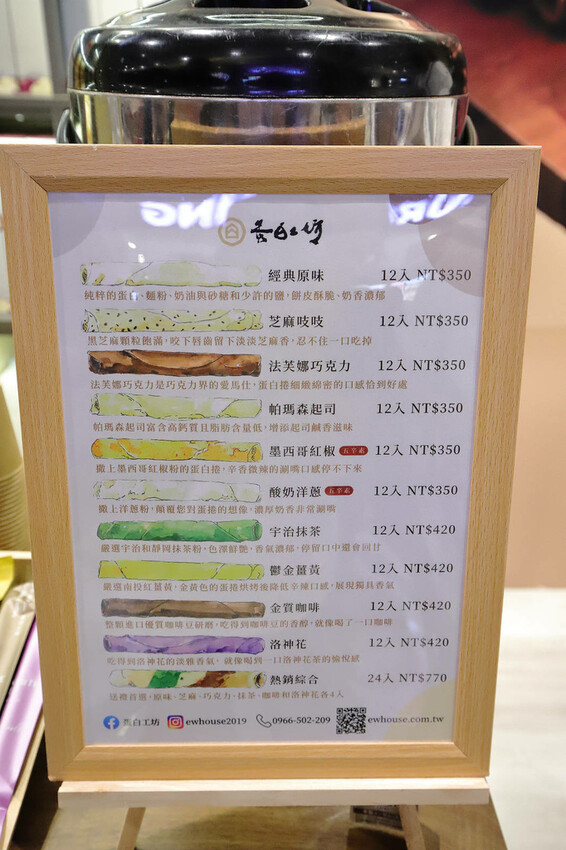 蛋白工坊
經典原味 12入 NT$350
純粹的蛋白、麵粉、奶油與砂糖和少許的鹽,餅皮酥脆、奶香濃郁
芝麻吱吱 12入 NT$350
黑芝麻顆粒飽滿,咬下唇齒留下淡淡芝麻香,忍不住一口吃掉
法芙娜巧克力 12入 NT$350
法芙娜巧克力是巧克力界的愛馬仕,蛋白捲細緻綿密的口感恰到好處
帕瑪森起司 12入 NT$350
帕瑪森起司富含高鈣質且脂肪含量低,增添起司鹹香滋味
墨西哥紅椒 五辛素 12入 NT$350
撒上墨西哥紅椒粉的蛋白捲,辛香微辣的涮嘴口感停不下來
酸奶洋蔥 五辛素 12入 NT$350
撒上洋蔥粉,顛覆您對蛋捲的想像,濃厚奶香非常涮嘴
宇治抹茶 12入 NT$420
嚴選宇治和靜岡抹茶粉,色澤鮮艷,香氣濃郁,停留口中還會回甘
鬱金薑黃 12入 NT$420
嚴選南投紅薑黃,金黃色的蛋捲烘烤後降低辛辣口感,展現獨具香氣
金質咖啡 12入 NT$420
整顆進口優質咖啡豆研磨,吃得到咖啡豆的香醇,就像喝了一口咖啡
洛神花 12入 NT$420
吃得到洛神花的淡雅香氣,就像喝到一口洛神花茶的愉悅感
熱銷綜合 24入 NT$770
送禮首選,原味、芝麻、巧克力、抹茶、咖啡和洛神花各4入
蛋白工坊 ewhouse2019 0966-502-209 ewhouse.com.tw